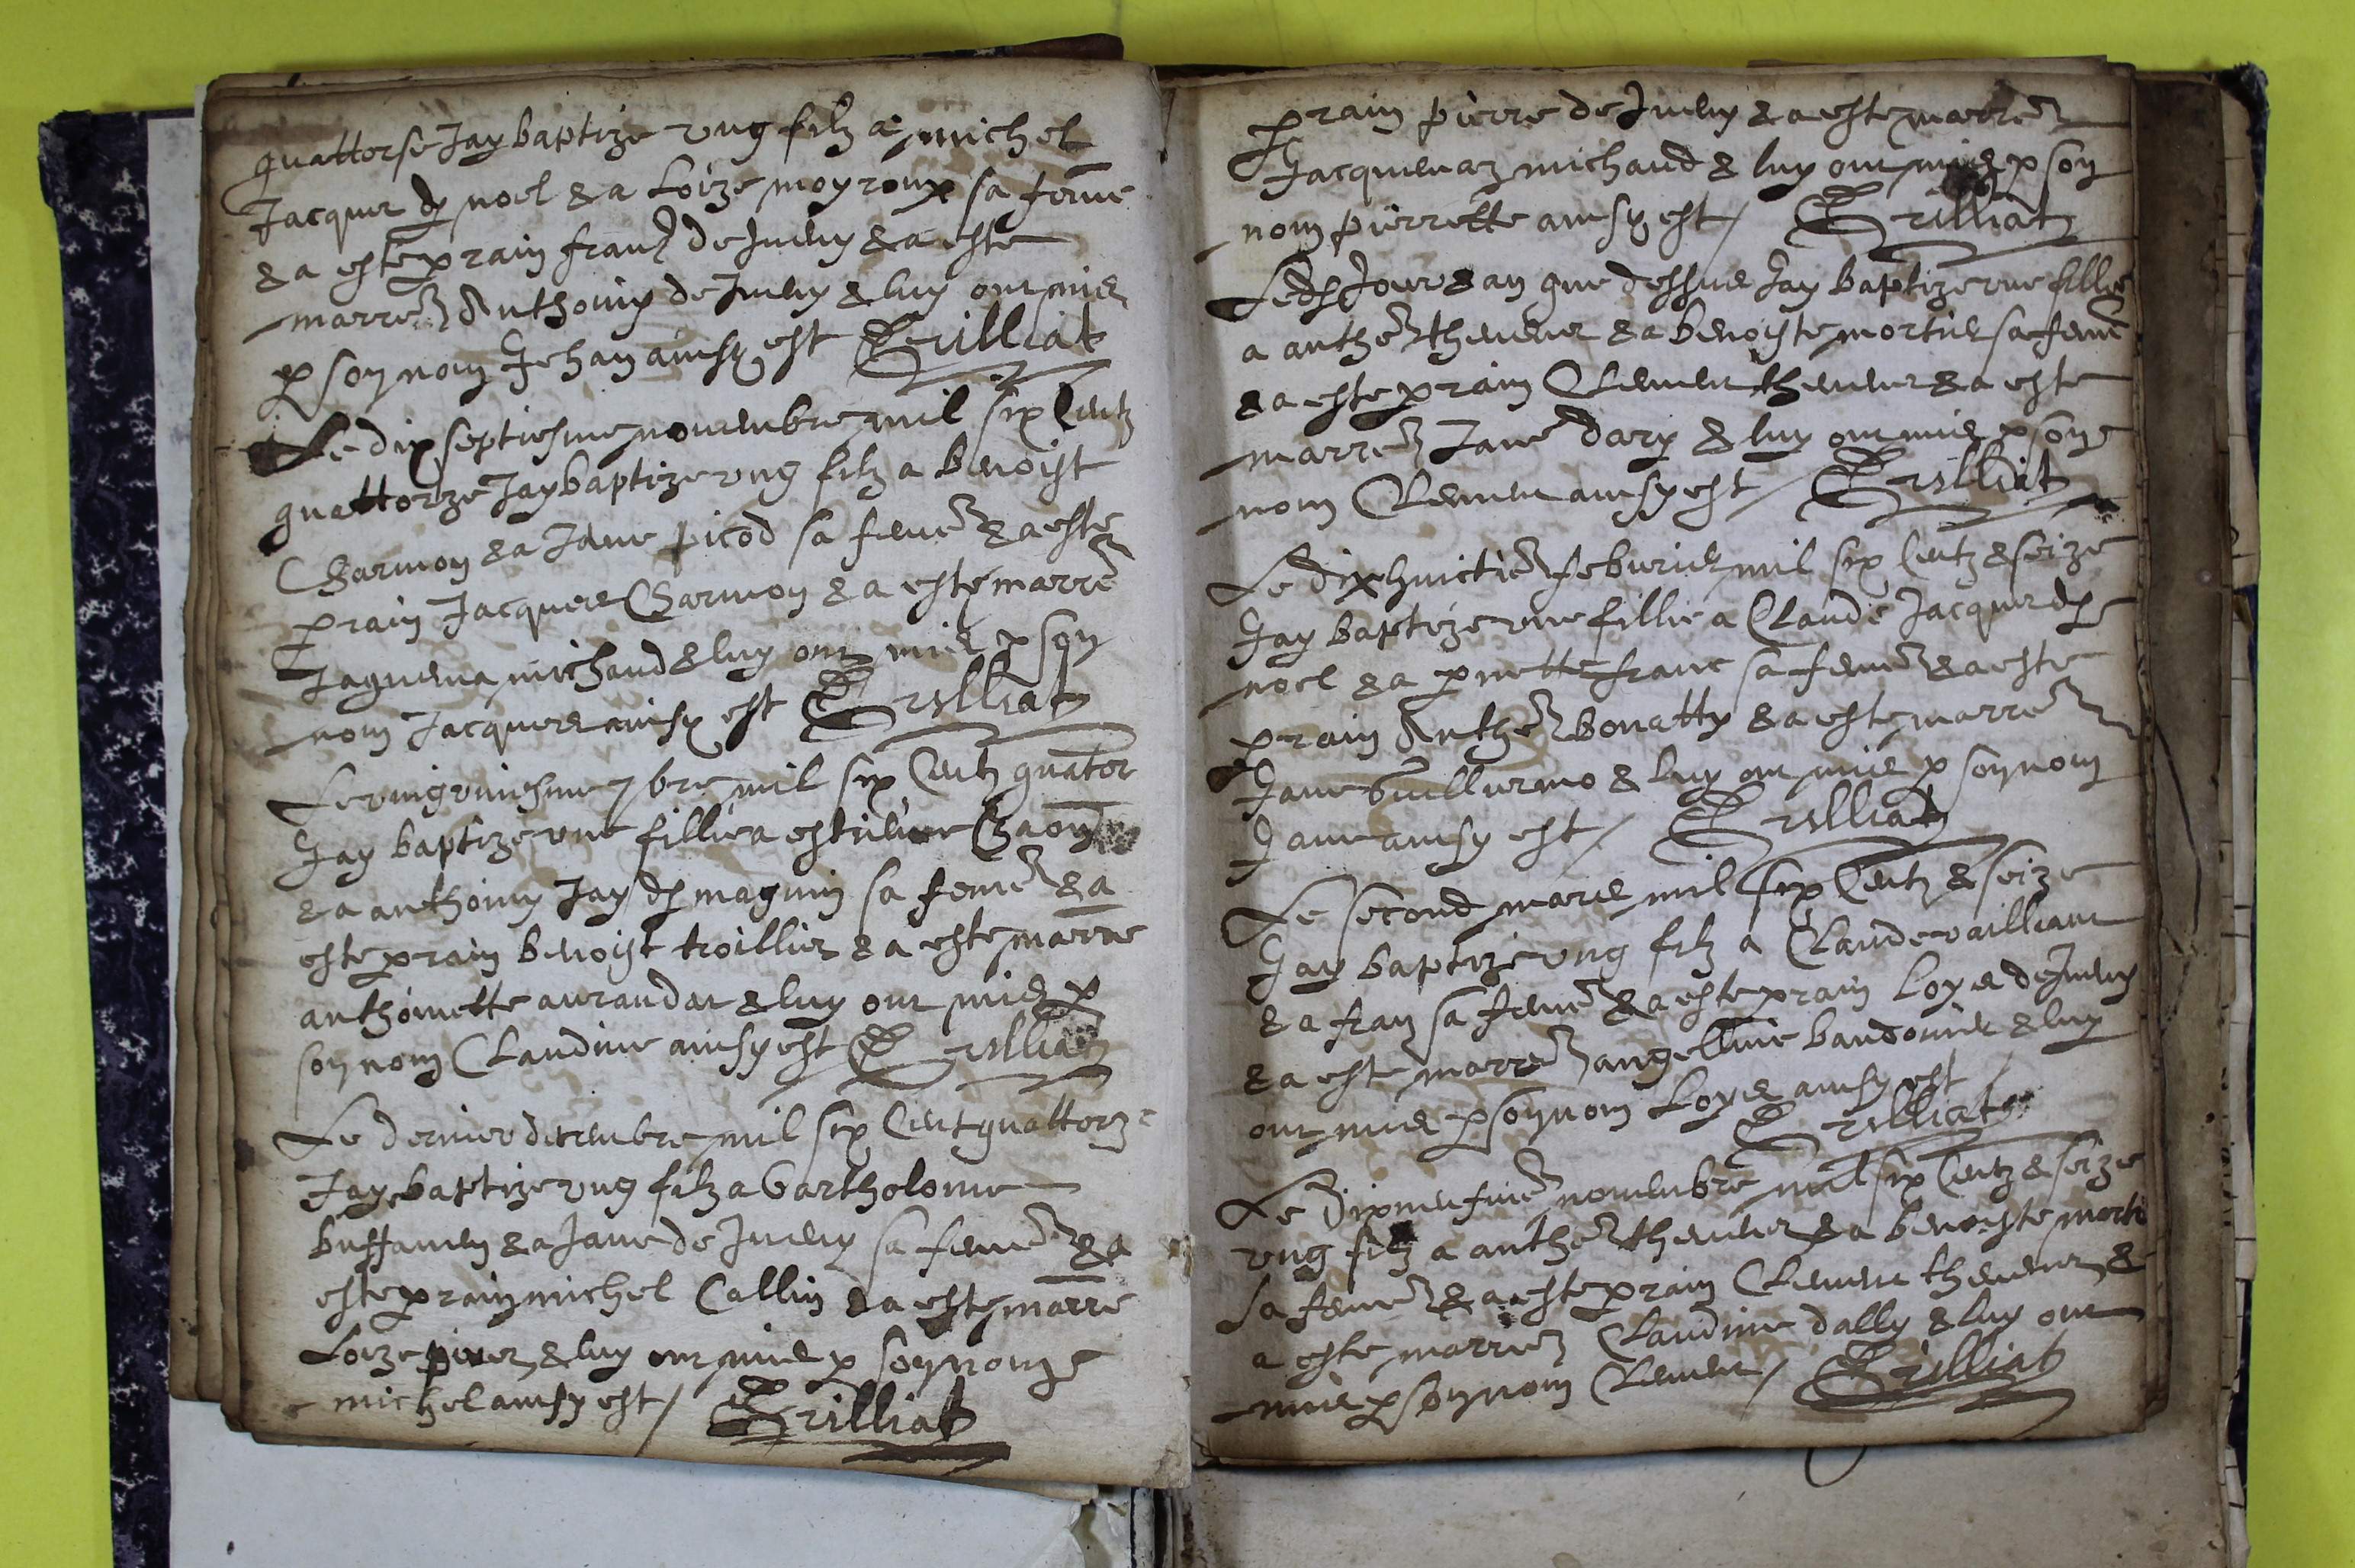 quattorse Jay baptize ung filz a michel
Jacquet dy noel & a Loize moyroux sa feme
& a este prain franc de Juley & a este
marre Anthoiny de Juley & luy ont mis
p son nom Jehan ainsy est Grilliat
Le dix septiesme novembre mil six Centz
quattorze Jay baptize ung filz a benoist
Charmon & a Jane picod sa feme & a este
prain Jacques Charmon & a este marre
Jaquema michaud & luy ont mis p son
nom Jacques ainsy est Grilliat
Le 7bre mil six Centz quator
Jay baptize une fillie a estienne
& a anthoiny Jay dy magnin sa feme & a
este prain benoist troillier & a este marre
anthoinette & luy ont mis p
son nom Claudine ainsy est Grilliat
Le dernier decembre mil six Centz quattorze
Jay baptize ung filz a bartholome
& a Jane de Juley sa feme & a
este prain michel Callin & a este marre
Loize & luy ont mis p son nom
michel ainsy est / Grilliat
prain pierre de Juley & a este marre
Jacquemaz michaud & luy ont mis p son
nom pierrette ainsy est / Grilliat
Ledy Jour & an que dessus Jay baptize une fillie
a anthe thevenet & a benoiste mortier sa feme
& a este prain Clement thevenet & a este
marre Jane dary & luy ont mis p son
nom Clement ainsy est / Grilliat
Le dixhuictie feburier mil six Centz & seize
Jay baptize une fillie a Claude Jacquet dy
noel & a pnette franc sa feme & a este
prain Anthe bonatty & a este marre
Jane Guillermo & luy ont mis p son nom
Jane ainsy est / Grilliat
Le second mars mil six Centz & seize
Jay baptize ung filz a Claude vailliant
& a fran sa feme & a este prain Loys de Juley
& a este marre angelline & luy
ont mis p son nom Loys ainsy est /
Grilliat
Le dixneufvie novembre mil six Centz & seize
ung filz a anthe thevenet & a benoiste morti
sa feme & a este prain Clement thevenet &
a este marrie Claudine dally & luy ont
mis p son nom Clement / Grilliat